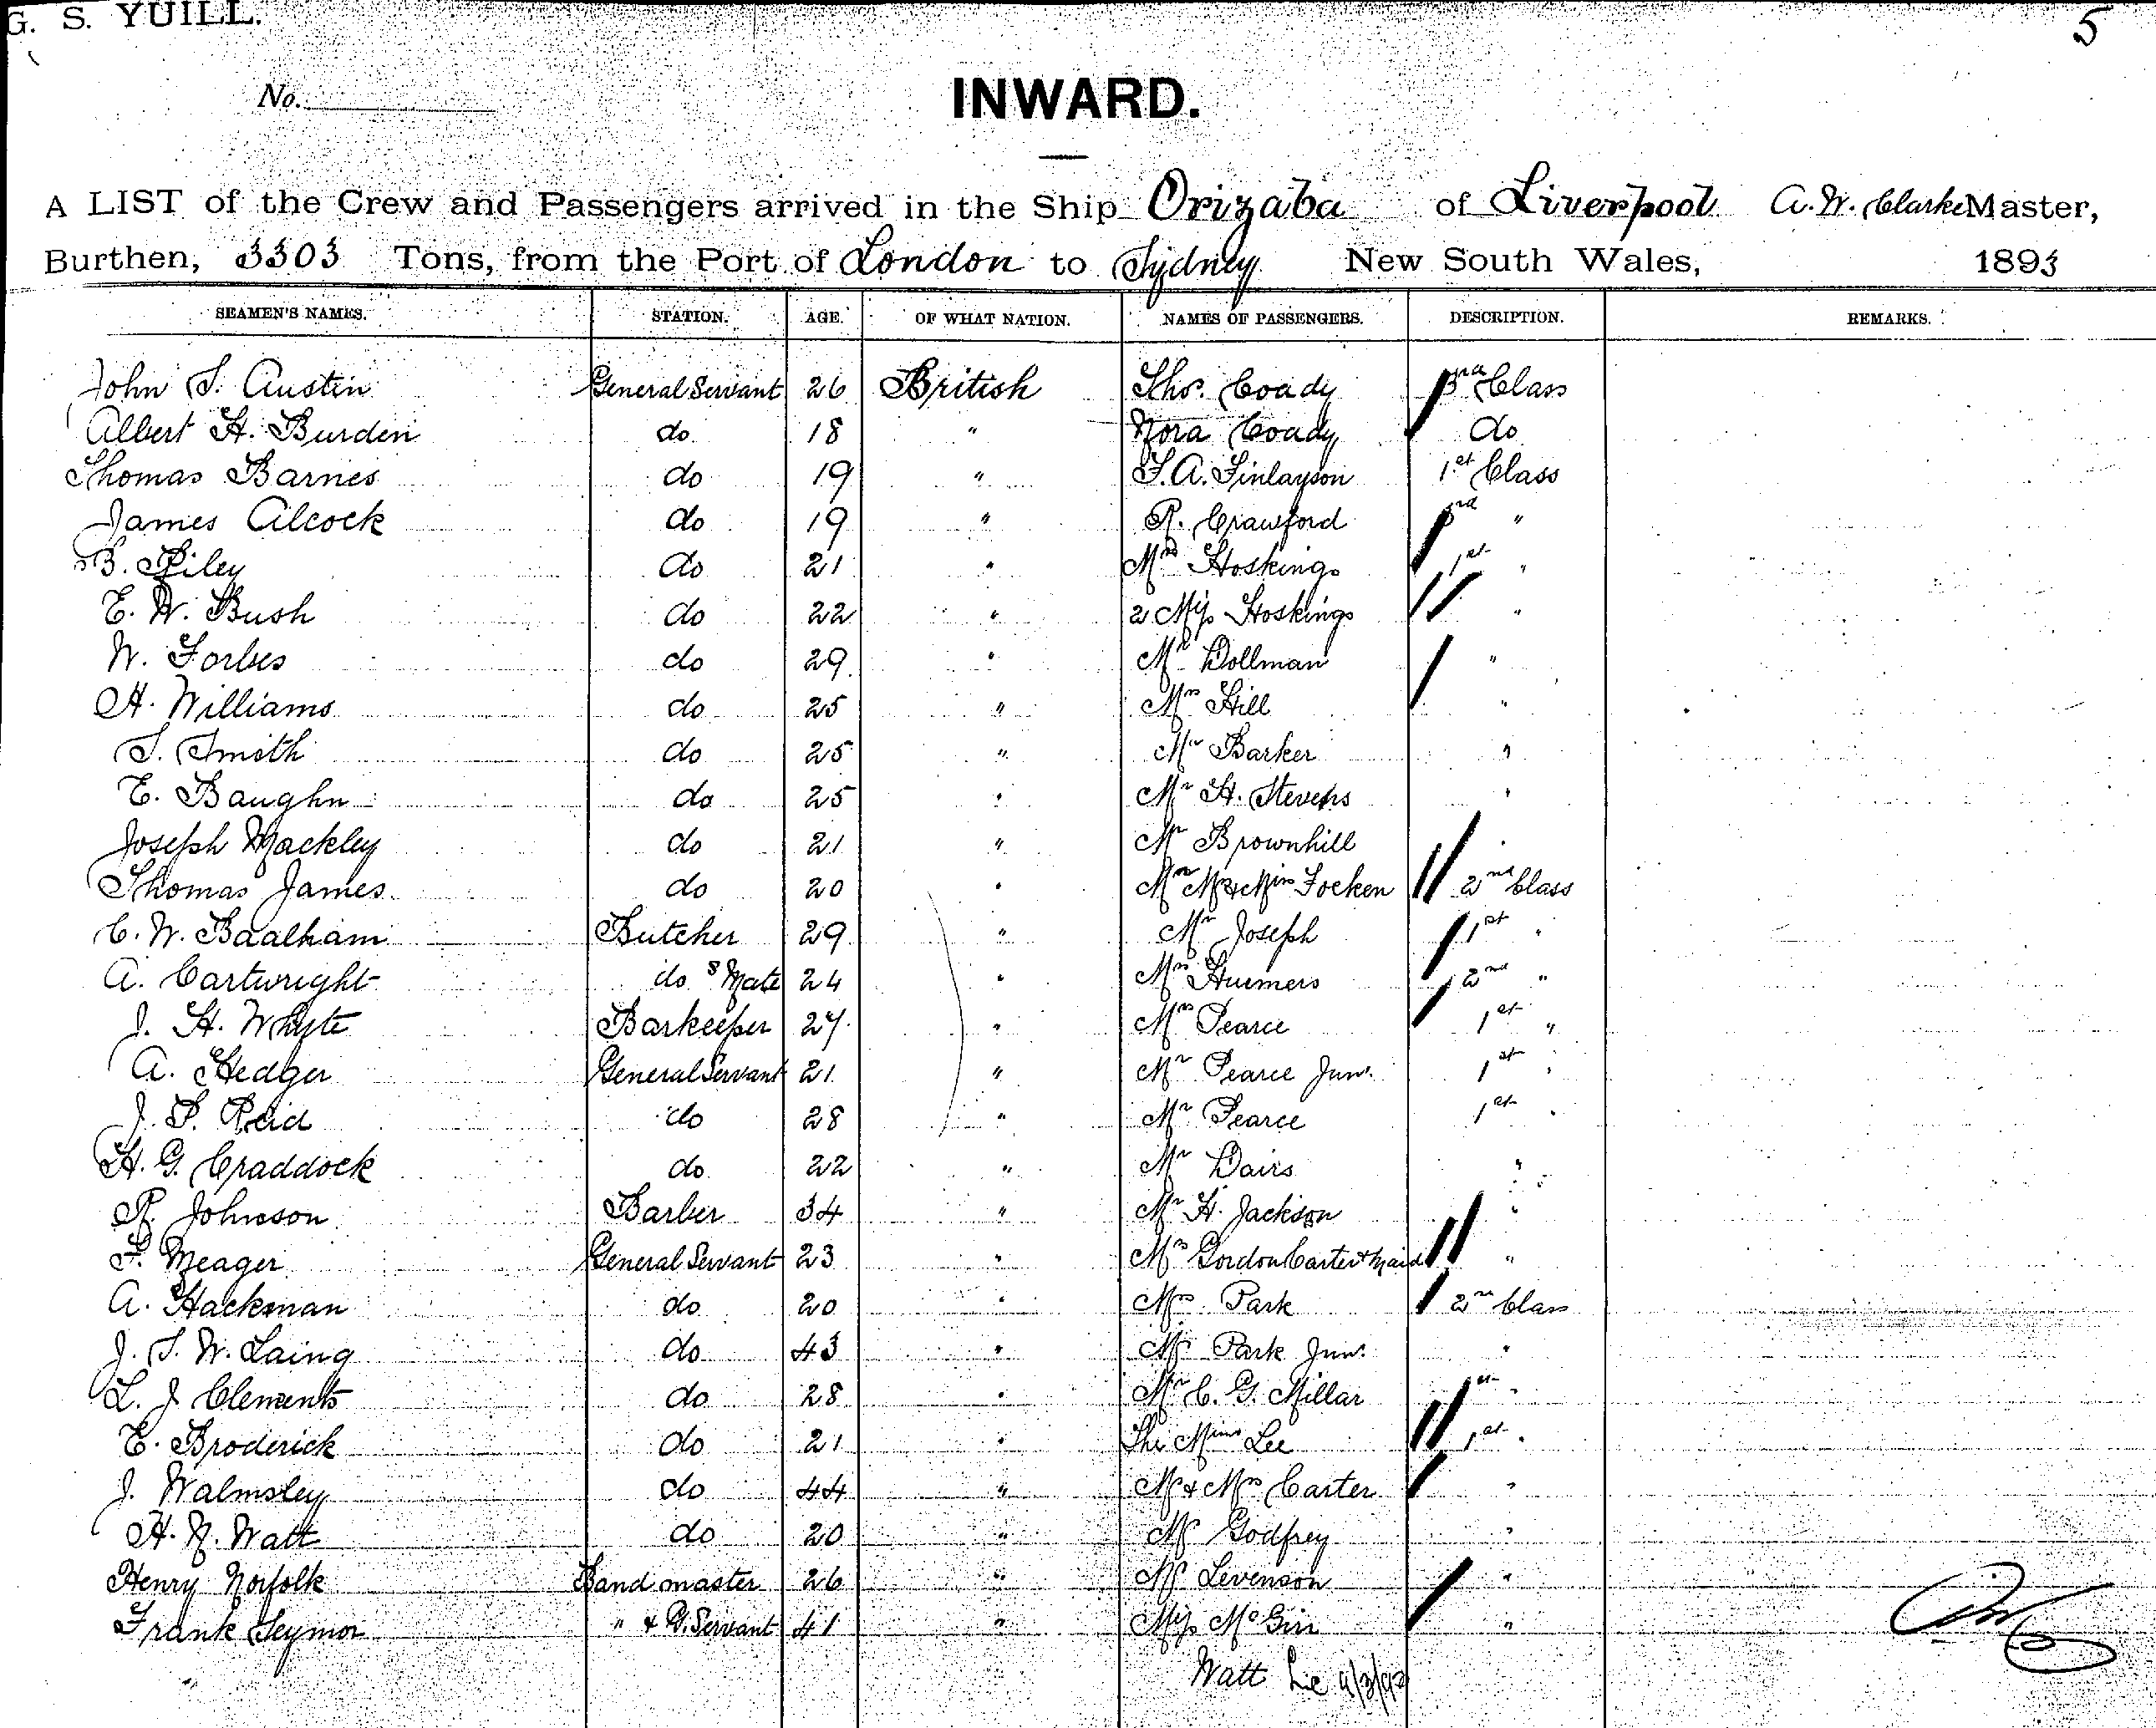 G. S. YUILL.
5
No.
INWARD.
A LIST of the Crew and Passengers arrived in the Ship Orizaba of Liverpool A. W. Clarke Master,
Burthen, 3303 Tons, from the Port of London to Sydney New South Wales, 1893
SEAMEN'S NAMES. STATION. AGE. OF WHAT NATION. NAMES OF PASSENGERS. DESCRIPTION. REMARKS.
John T. Austin General Servant 26 British Thos. Coady 3rd Class
Albert H. Burden do 18 " Nora Coady do
Thomas Barnes do 19 " F. A. Finlayson 1st Class
James Alcock do 19 " R. Crawford 3rd "
B. Riley do 21 " Mrs Hoskings 1st "
E. W. Bush do 22 " 2 Miss Hoskings "
W. Forbes do 29 " Mr Dollman "
H. Williams do 25 " Mrs Hill "
T. Smith do 25 " Mr Barker "
E. Baughn do 25 " Mr H. Stevens "
Joseph Mackley do 21 " Mr Brownhill "
Thomas James do 20 " Mr Mrs & Miss Focken 2nd Class
C. W. Baalham Butcher 29 " Mr Joseph 1st "
A. Cartwright do s Mate 24 " Mrs 2nd "
J. H. Whyte Barkeeper 27 " Mrs Pearce 1st "
A. Hedger General Servant 21 " Mr Pearce Junr. 1st "
J. P. Reid do 28 " Mr Pearce 1st "
H. G. Craddock do 22 " Mr Davis "
R. Johnson Barber 34 " Mr H. Jackson "
F. Meager General Servant 23 " Mrs Gordon Carter & Maid "
A. Hackman do 20 " Mrs Park 2nd Class
J. T. W. Laing do 43 " Mr Park Junr. "
L. J. Clements do 28 " Mr C. G. Millar 1st "
E. Broderick do 21 " The Misses Lee 1st "
J. Walmsley do 44 " Mr & Mrs Carter "
H. N. Watt do 20 " Mr Godfrey "
Henry Norfolk Bandmaster 26 " Mr Levenson "
Frank Seymor " & G. Servant 41 " Miss McGirr "
Watt